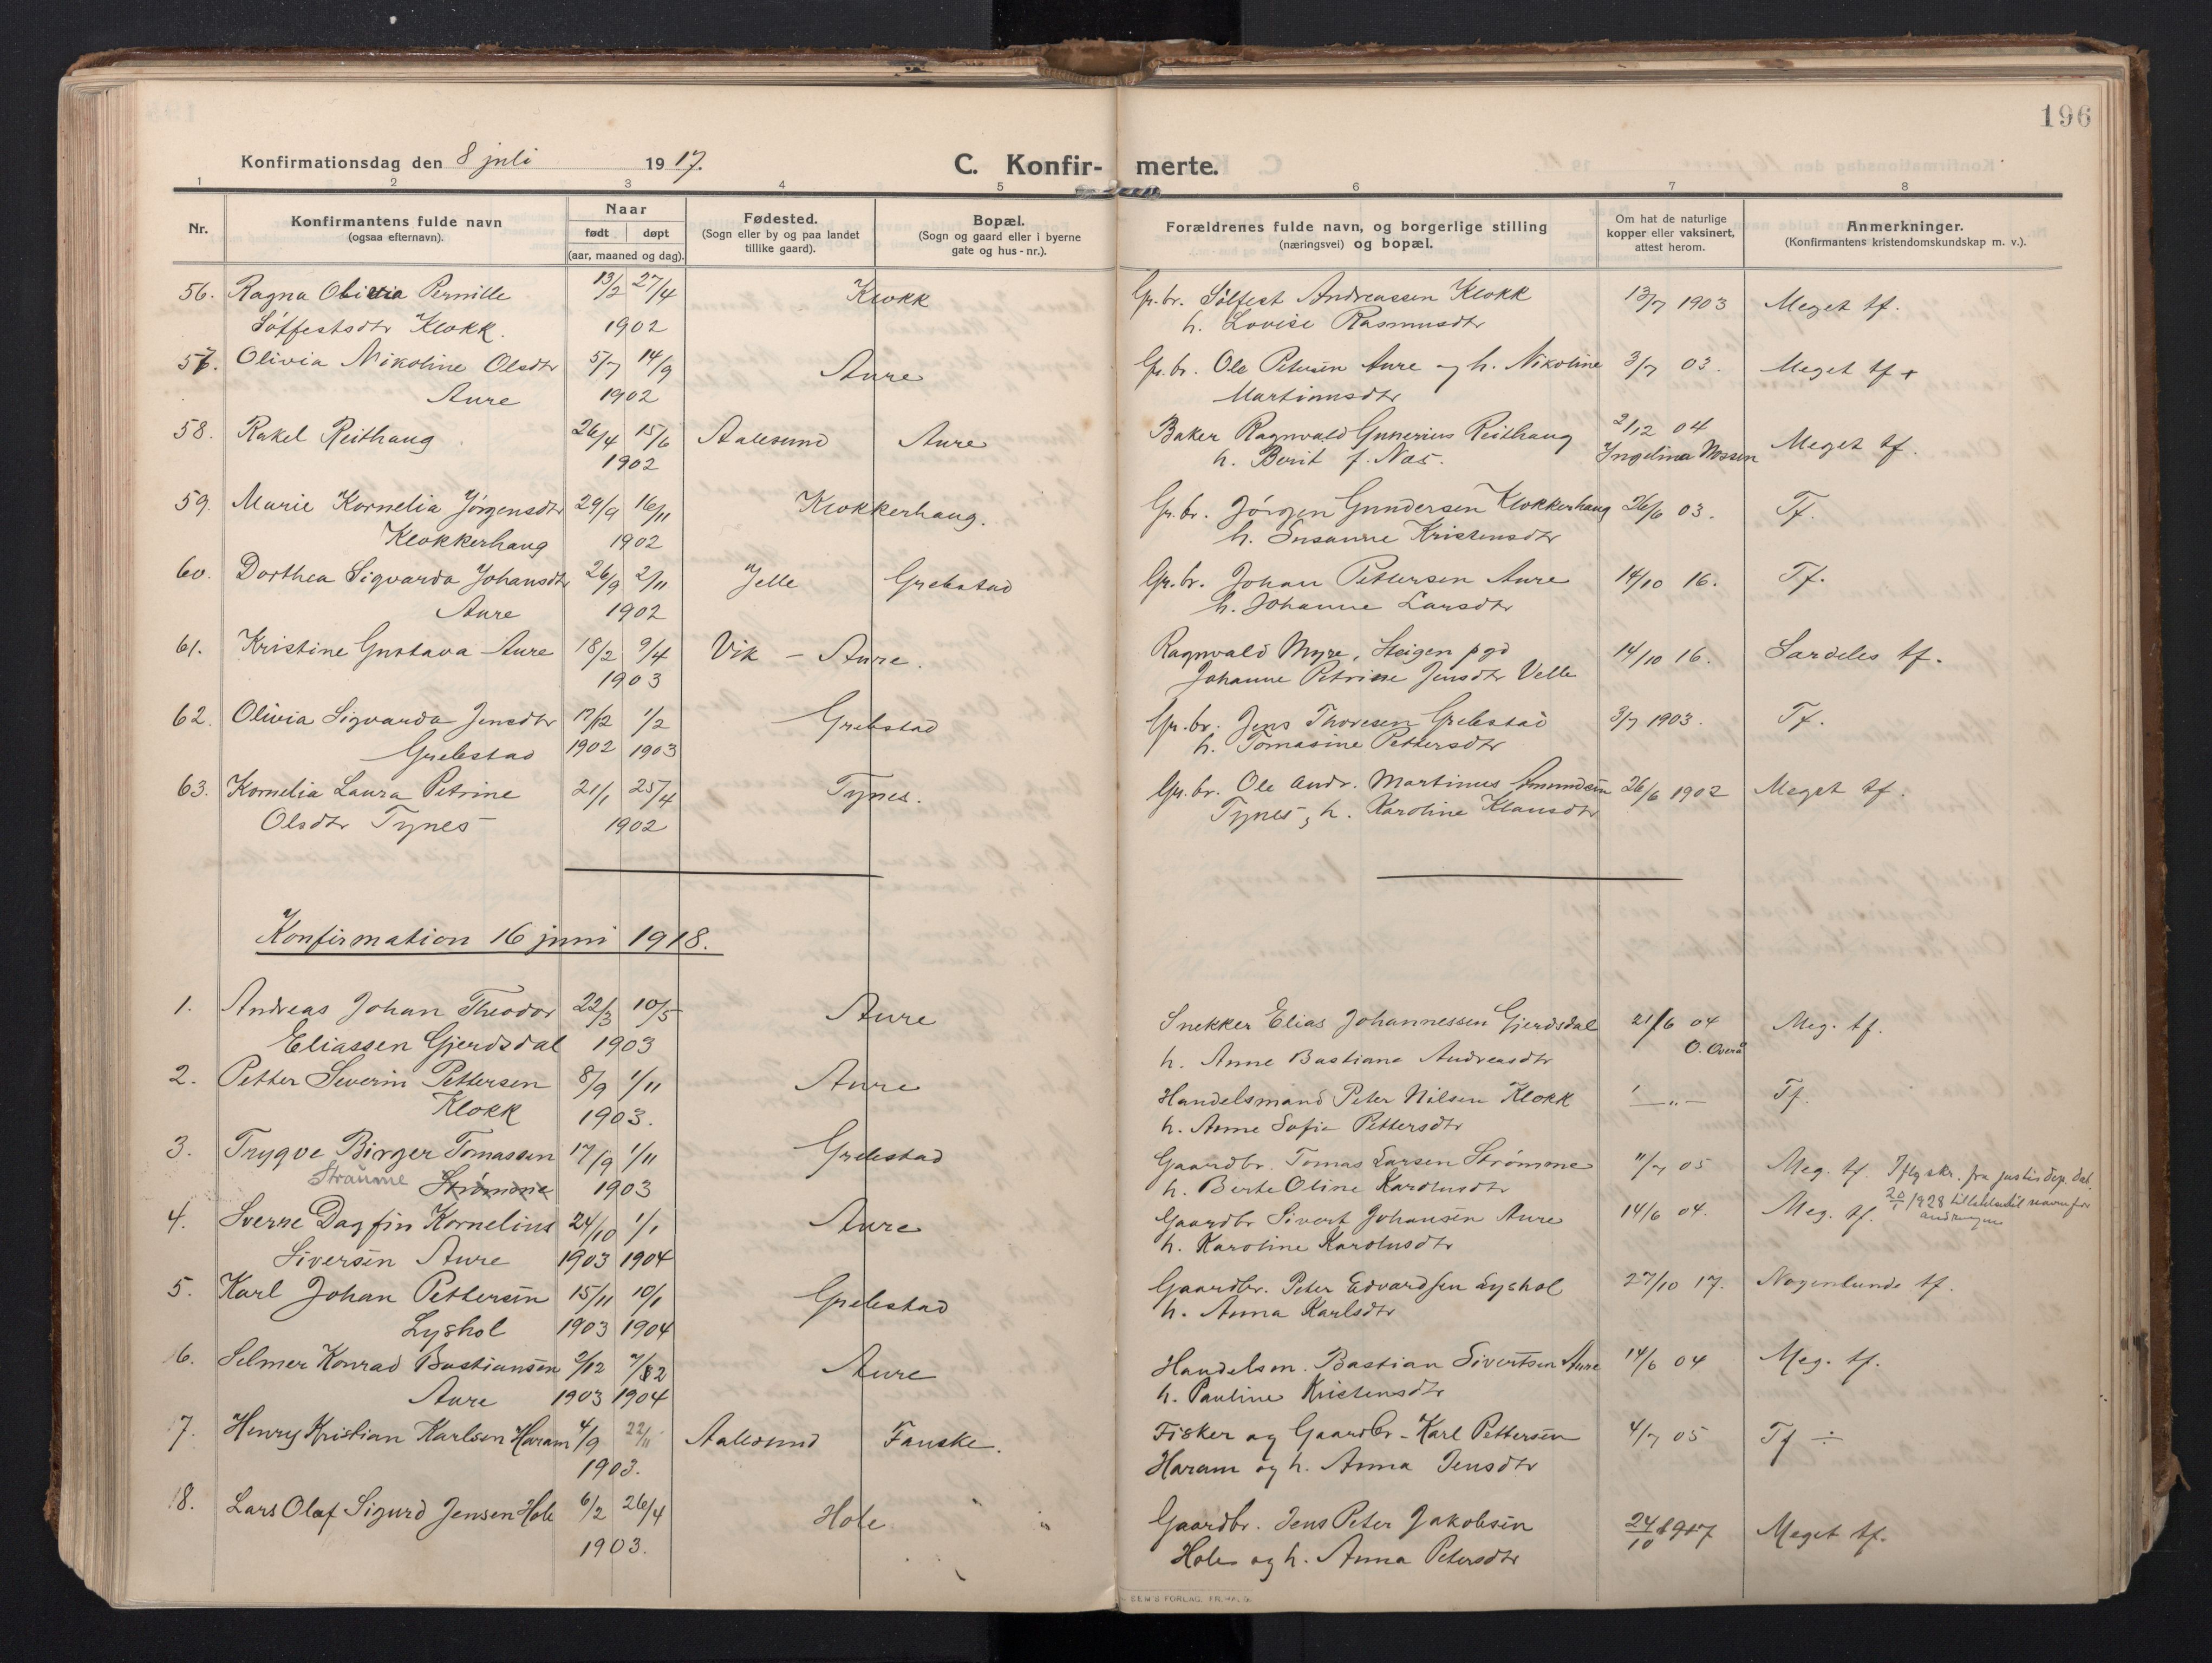 196
Konfirmationsdag den 8 juli 1917.
C. Konfir- merte.
1 2 3 4 5 6 7 8
Nr.
Konfirmantens fulde navn
(ogsaa efternavn).
Naar
født døpt
(aar, maaned og dag).
Fødested.
(Sogn eller by og paa landet
tillike gaard).
Bopæl.
(Sogn og gaard eller i byerne
gate og hus-nr.).
Forældrenes fulde navn, og borgerlige stilling
(næringsvei) og bopæl.
Om hat de naturlige
kopper eller vaksinert,
attest herom.
Anmerkninger.
(Konfirmantens kristendomskundskap m. v.).
56. Ragna Olivia Pernille 13/2 27/4 Klokk Gr.br. Sølfest Andreassen Klokk 13/7 1903 Meget tf.
Sølfestsdtr Klokk. 1902 h. Lovise Rasmusdtr
57. Olivia Nikoline Olsdtr 5/7 14/9 Aure Gr.br. Ole Petersen Aure og h. Nikoline 3/7 03. Meget tf +
Aure 1902 Martinusdtr
58. Rakel Reithaug 26/4 15/6 Aalesund Aure Baker Ragnvald Gunerius Reithaug 2/12 04 Meget tf.
1902 h. Berit f. Næs. Ingelina Mossen
59. Marie Kornelia Jørgensdtr 29/9 16/11 Klokkerhaug. Gr.br. Jørgen Gundersen Klokkerhaug 26/6 03. Tf.
Klokkerhaug 1902 h. Susanne Kristensdtr
60. Dorthea Sigvarda Johansdtr 26/9 2/11 Jelle Grebstad Gr.br. Johan Pettersen Aure 14/10 16. Tf.
Aure 1902 h. Johanne Larsdtr
61. Kristine Gustava Aure 18/2 9/4 Vik - Aure. Ragnvald Myre, Steigen pgd 14/10 16. Særdeles tf.
1903 Johanne Petrine Jensdtr Velle
62. Olivia Sigvarda Jensdtr 17/12 1/2 Grebstad Gr.br. Jens Thoresen Grebstad 3/7 1903. Tf.
Grebstad 1902 1903 h. Tomasine Pettersdtr
63. Kornelia Laura Petrine 21/1 25/4 Tynes. Gr.br. Ole Andr. Martinus Amundsen 26/6 1902 Meget tf.
Olsdtr Tynes 1902 Tynes, h. Karoline Klausdtr
Konfirmation 16 juni 1918.
1. Andreas Johan Theodor 22/3 10/5 Aure Snekker Elias Johannessen Gjerdsdal 21/6 04 Meg. tf.
Eliassen Gjerdsdal 1903 h. Anne Bastiane Andreasdtr O. Overå
2. Petter Severin Pettersen 8/9 1/11 Aure Handelsmand Peter Nilsen Klokk —„— Tf.
Klokk 1903. h. Anne Sofie Pettersdtr
3. Trygve Birger Tomassen 17/9 1/11 Grebstad Gaardbr. Tomas Larsen Strømme 11/7 05 Meg. tf. Iflg skr. fra justisdep. dat.
Straume Strømme 1903 h. Berte Oline Karolusdtr 20/1 1928 navnfor
andringen
4. Sverre Dagfin Kornelius 24/10 1/1 Aure Gaardbr Sivert Johansen Aure 14/6 04. Meg. tf.
Siversen Aure 1903 1904 h. Karoline Karolusdtr
5. Karl Johan Pettersen 15/11 10/1 Grebstad Gaardbr. Peter Edvardsen Lyshol 27/10 17. Nogenlunde tf.
Lyshol 1903 1904 h. Anna Karlsdtr
6. Selmer Konrad Bastiansen 2/12 7/2 Aure Handelsm. Bastian Sivertsen Aure 14/6 04 Meg. tf.
Aure 1903 1904 h. Pauline Kristensdtr
7. Henry Kristian Karlsen Haram 4/9 22/11 Aalesund Fauske. Fisker og Gaardbr. Karl Pettersen 4/7 05 Tf ÷
1903. Haram og h. Anna Jensdtr
8. Lars Olaf Sigurd Jensen Hole 6/2 26/4 Hole Gaardbr. Jens Peter Jakobsen 24/10 1917 Meget tf.
1903. Hole og h. Anna Petersdtr
SEM'S FORLAG, FR.HALD.